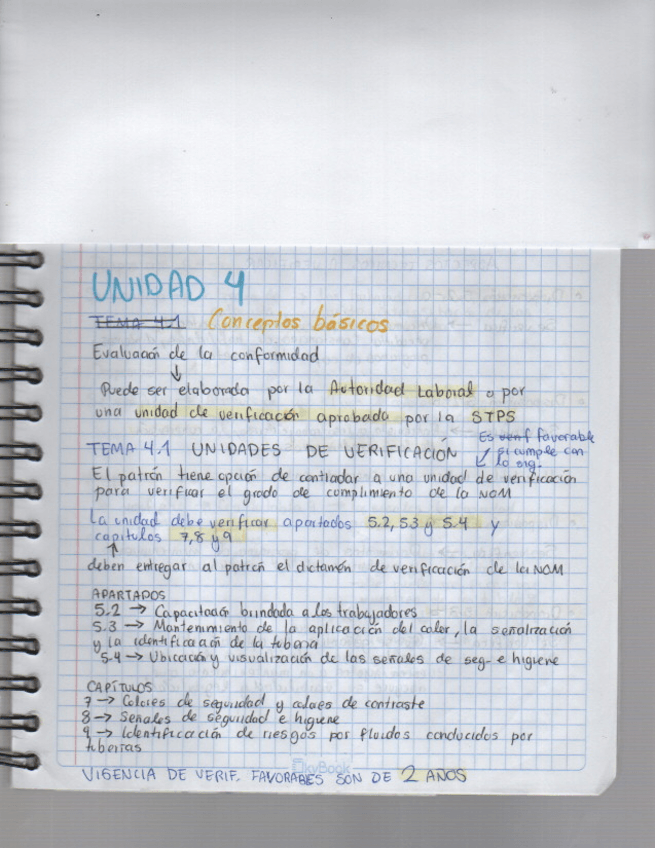 UNIDAD 4
TEMA 4.1 Conceptos básicos
Evaluación de la conformidad
↓
Puede ser elaborada por la Autoridad Laboral o por
una unidad de verificación aprobada por la STPS
Es verif favorable
si cumple con
lo sig.
TEMA 4.1 UNIDADES DE VERIFICACIÓN
El patrón tiene opción de contratar a una unidad de verificación
para verificar el grado de cumplimiento de la NOM
La unidad debe verificar apartados 5.2, 5.3 y 5.4 y
capitulos 7, 8 y 9
↑
deben entregar al patrón el dictamén de verificación de la NOM
APARTADOS
5.2 → Capacitación brindada a los trabajadores
5.3 → Mantenimiento de la aplicación del color, la señalización
y la identificación de la tubería
5.4 → Ubicación y visualización de las señales de seg- e higiene
CAPÍTULOS
7 → Colores de seguridad y colores de contraste
8 → Señales de seguridad e higiene
9 → Identificación de riesgos por fluidos conducidos por
tuberías
SkyBook
VIGENCIA DE VERIF. FAVORABES SON DE 2 AÑOS